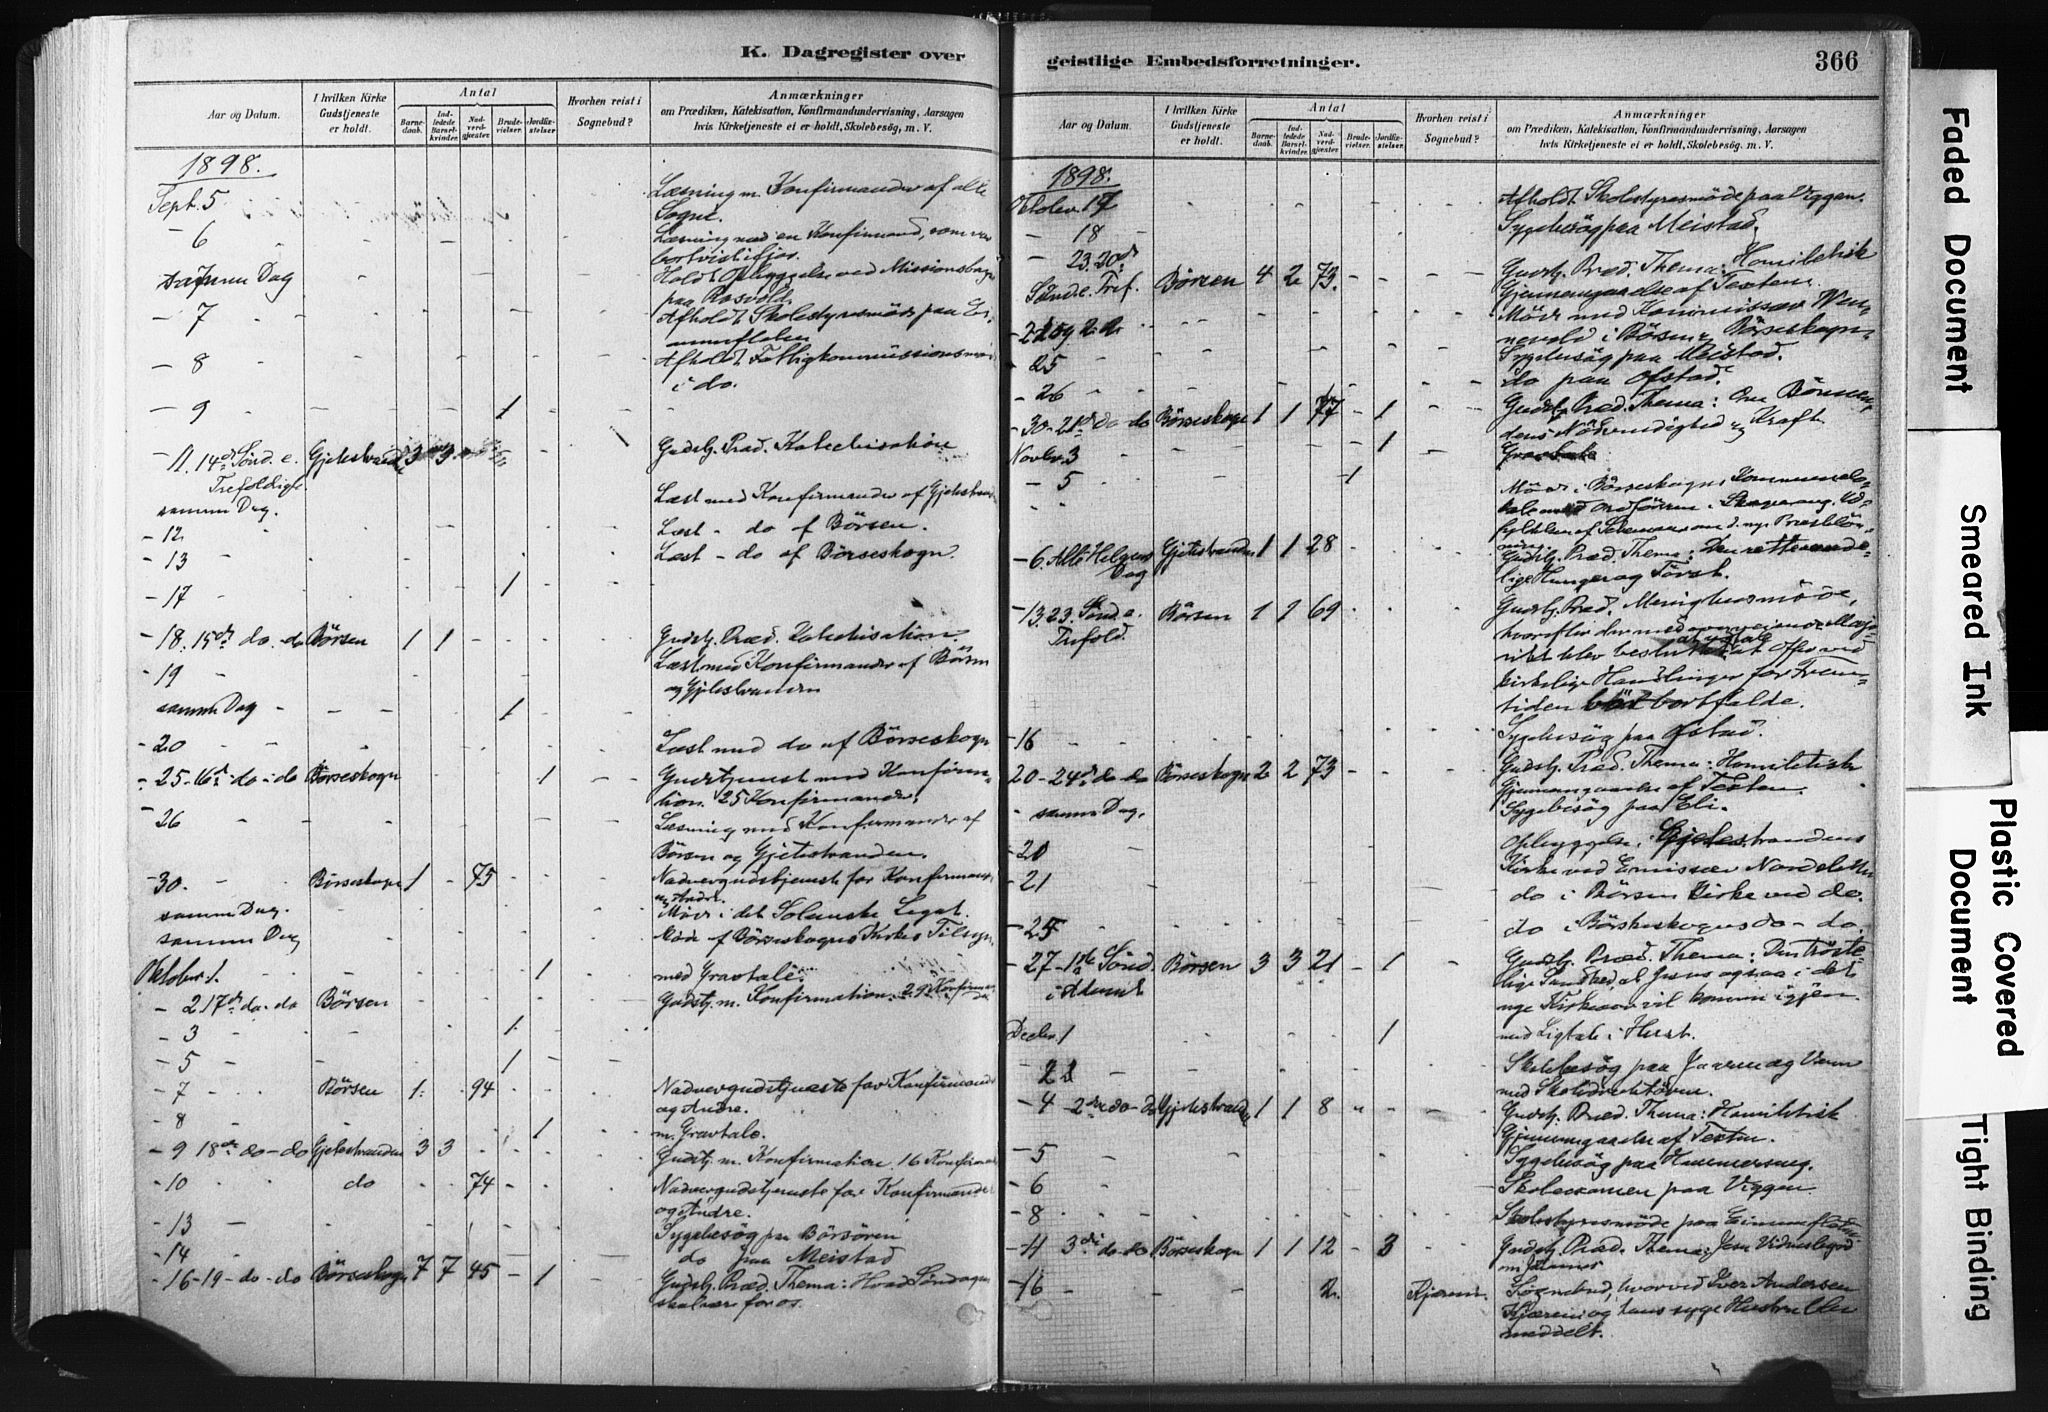 K. Dagregister over
Aar og Datum.
I hvilken Kirke Gudstjeneste er holdt.
Antal
Barnedaab.
Indledede Barselkvinder.
Nadverdgjæster.
Brudevielser.
Jordfæstelser.
Hvorhen reist i Sognebud?
Anmærkninger
om Prædiken, Katekisation, Konfirmandundervisning, Aarsagen
hvis Kirketjeneste ei er holdt, Skolebesøg, m. V.
1898.
Sept. 5 Læsning m. Konfirmander af alle
Sogne.
- 6 Læsning med en Konfirmand, som var
bortvist ifjor.
samme Dag Holdt Opbyggelse ved Missions
paa Rosvold.
- 7 Afholdt Skolestyresmöde paa
- 8 Afholdt Fattigkommissionsmöde
i do.
- 9 1
- 11. 14de Sönd. e. Gjetestranden 3 3 Gudstj. Præd. Katechisation
Trefoldigh.
samme Dag. Læst med Konfirmander af Gjetestranden
- 12 Læst - do af Börsen.
- 13 Læst - do af Börseskogn.
- 17 1
- 18. 15de do - do Börsen 1 1 Gudstj. Præd. Katechisation.
- 19 Læst med Konfirmander af Börsen
og Gjetestranden
samme Dag 1
- 20 Læst med do af Börseskogn
- 25 - 16de - do - do Börseskogn 1 Gudstjeneste med Konfirma-
tion. 25 Konfirmander.
- 26 Læsning med Konfirmander af
Börsen og Gjetestranden.
- 30. Börseskogn 1 - 85 Nadvergudstjeneste for Konfirmander
og Andre.
samme Dag. Möde i det Legat.
samme Dag Möde af Börseskogns Kirkes Tilsyn
Oktober 1. 1 med Gravtale.
- 2 17de do - do Börsen Gudstj. m. Konfirmation. 29 Konfirman
- 3 1
- 5 1
- 7 Börsen 1 94 Nadvergudstjeneste for Konfirmander
og Andre.
- 8 1 m. Gravtale.
- 9 18de do - do Gjetestranden 3 3 Gudstj. m. Konfirmation. 16 Konfirmander
- 10 do 74 Nadvergudstjeneste for Konfirmander
og Andre.
- 13 Sygebesög paa Börsören
- 14 do paa Meistad
- 16 - 19 - do - do Börseskogn 7 7 45 - 1 Gudstj. Præd. Thema: Hvad Söndagen
skal være for os.
geistlige Embedsforretninger.
366
Aar og Datum.
I hvilken Kirke Gudstjeneste er holdt.
Antal
Barnedaab.
Indledede Barselkvinder.
Nadverdgjæster.
Brudevielser.
Jordfæstelser.
Hvorhen reist i Sognebud?
Anmærkninger
om Prædiken, Katekisation, Konfirmandundervisning, Aarsagen
hvis Kirketjeneste ei er holdt, Skolebesøg, m. V.
1898.
Oktober 17 Afholdt Skolestyresmöde paa Viggen.
- 18 Sygebesög paa Meistad.
- 23. 20de Gudstj. Præd. Thema: Homiletisk
Sönd. e. Tref. Börsen 4 2 73 Gjennemgaaelse af Texten.
Möde med Kommissær Wen-
nevold i Börsen Börseskogn
- 25 Sygebesög paa Meistad.
- 26 do paa Ofstad.
- 30 - 21de do do Börseskogn 1 1 77 - 1 Gudstj. Præd. Thema: Om Bönnen,
dens Nödvendighed og Kraft.
Novbr. 3 1
- 5 1
Möde i Börseskogns Kommunelo-
kale med Ordföreren
- 6. Alle Helgens Gjetestranden 1 1 28 Gudstj. Præd. Thema:
Dag lige Hunger og Törst.
- 13. 23. Sönd e. Börsen 1 1 69 Gudstj. Præd. Menighedsmöde,
Trefold. hvorefter der med overveiende Majo-
ritet blev besluttet at Offer ved
kirkelige Handlinger for Frem-
tiden bortfalde.
- 16 Sygebesög paa Ofstad.
20 - 24de do do Börseskogn 2 2 73 Gudstj. Præd. Thema: Homiletisk
Gjennemgaaelse af Texten.
- samme Dag. Sygebesög paa Eli.
- 20 Opbyggelse i Gjetestrandens
Kirke ved Emissær
- 21 do i Börsen Kirke ved do.
- 25 do i Börseskogns do - do.
- 27 - 1ste Sönd. Börsen 3 3 21 - 1 Gudstj. Præd. Thema: Den tröste-
i Advent lige Sandhed, at Jesus ogsaa i det
nye Kirkeaar vil komme igjen.
Decbr. 1 1 med Ligtale i Huset.
- 2 Skolebesög paa og
med Skoledirektören.
- 4 - 2den do - do Gjetestranden 1 1 8 Gudstj. Præd. Thema: Homiletisk
Gjennemgaaelse af Texten.
- 5 Sygebesög paa
- 6 Skoleexamen paa Viggen.
- 8 Skolestyresmöde paa
3die do do Börseskogn 1 1 12 - 3 Gudstj. Præd. Thema: Jesu Vidnesbyrd
om Johannes
- 16 2 Kjæren Sognebud, hvorved Iver Andersen
Kjæren og hans syge Hustru blev
meddelt.
Faded Document
Smeared Ink
Plastic Covered Document
Tight Binding